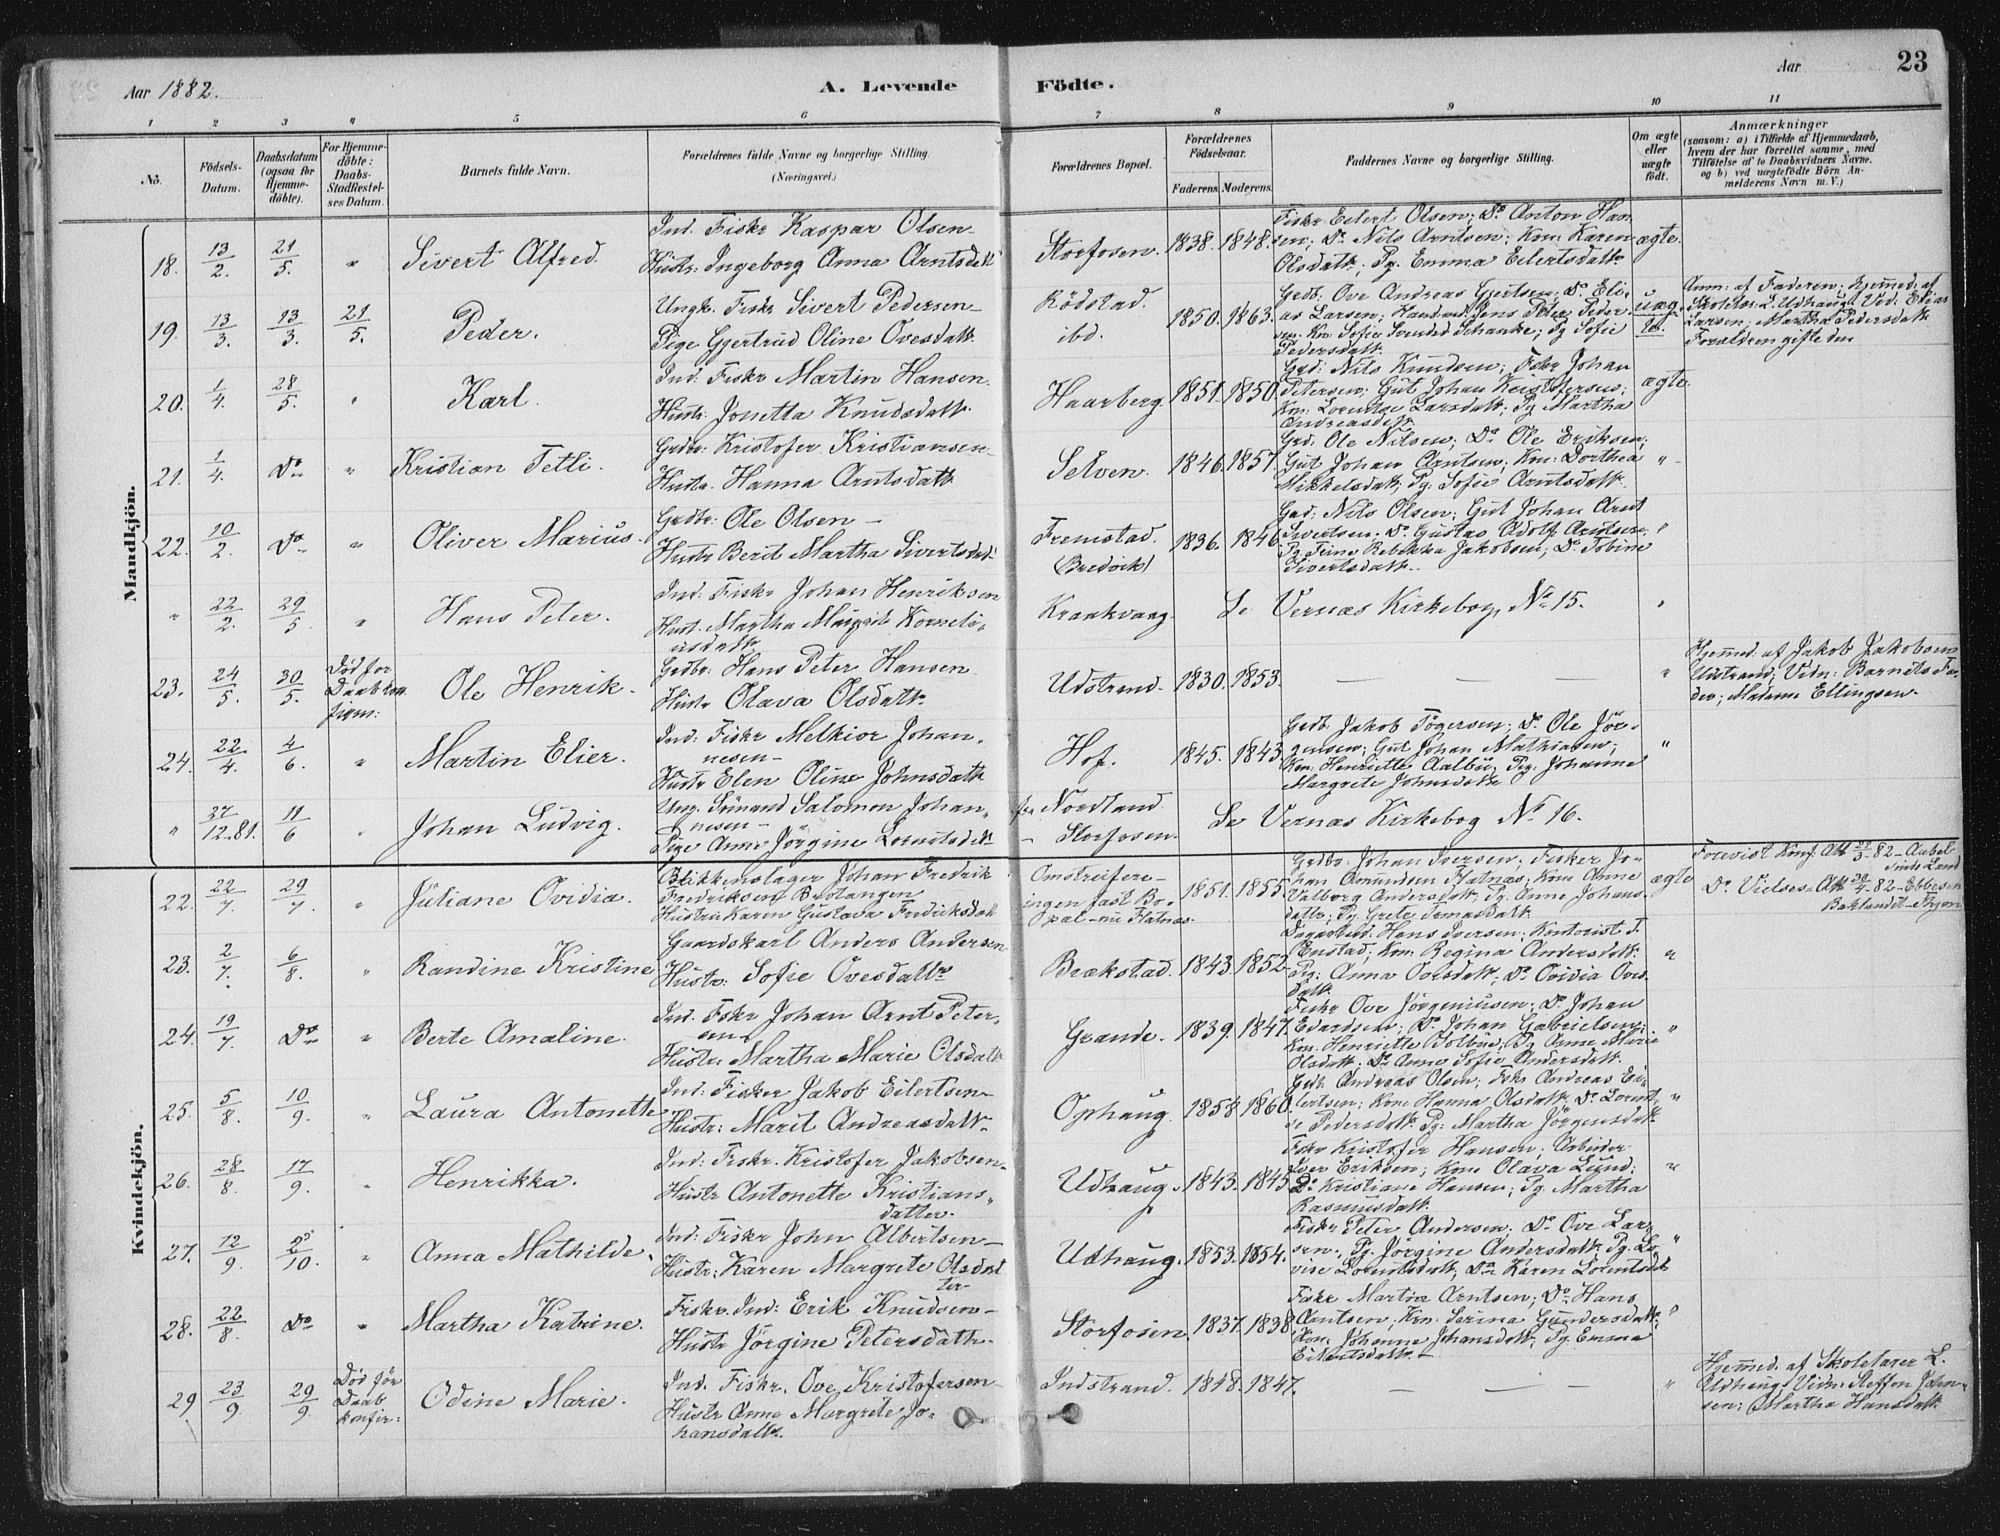 Aar 1882.
A. Levende Födte.
Aar
23
1 2 3 4 5 6 7 8 9 10 11
No.
Födsels-Datum.
Daabsdatum (ogsaa for Hjemme-döbte).
For Hjemme-döbte: Daabs-Stadfæstel-ses Datum.
Barnets fulde Navn.
Forældrenes fulde Navne og borgerlige Stilling. (Næringsvei.)
Forældrenes Bopæl.
Forældrenes Födselsaar.
Faderens. Moderens.
Faddernes Navne og borgerlige Stilling.
Om ægte eller uægte födt.
Anmærkninger
(saasom: a) i Tilfælde af Hjemmedaab, hvem der har forrettet samme, med Tilföielse af to Daabsvidners Navne, og b) ved uægtefödte Börn An-melderens Navn m. V.)
Mandkjön.
18. 13/2. 21/5. " Sivert Alfred.
Ind. Fiskr Kaspar Olsen-
Hustr: Ingeborg Anna Arntsdatt
Storfosen. 1838. 1848.
Fiskr Eilert Olsen; Do Anton Han
sen; Do Nils Arntsen; Kon: Karen
Olsdatt; Pg. Emma Eilertsdatt
ægte.
19. 13/3. 13/3. 21/5. Peder.
Ungk. Fiskr Sivert Pedersen-
Pige Gjertrud Oline Ovesdatt
Rödstad.
ibd.
1850. 1863.
Grdb: Ove Andreas Gjertsen; Do Eli-
as Larsen; Jens Peter Peder
sen. Kn: Sofie Schanke; Pg Sofie
Pedersdatt.
uæg
te.
Anm: af Faderen; hjemmed: af
Skolelær. L. Udhaug. Vid: Elias
Larsen, Martha Pedersdatt
20. 1/4. 28/5. " Karl.
Ind: Fiskr Martin Hansen.
Hustr: Jonetta Knudsdatt.
Haarberg. 1851. 1850.
Grd: Nils Knudsen; Fskr Johan
Petersen; Gut Johan Kristofersen;
Kn: Lorentse Larsdatt; Pg Martha
Andreasdtt
ægte.
21. 1/4. Do " Kristian Tetli.
Grdbr: Kristofer Kristiansen-
Hustr. Hanna Arntsdatt
Selven. 1846. 1857.
Grd: Ole Nilsen; Do Ole Eriksen;
Gut Johan Arntsen; Kon: Dorthea
Mikkelsdatt; Pg: Sofie Arntsdatt.
"
22. 10/2. Do " Oliver Marius.
Grdbr: Ole Olsen-
Hustr Berit Martha Sivertsdat
Fremstad.
1836. 1846
Grd: Nils Olsen; Gut Johan Arnt
Sivertsen. Do Gustav Adolf Arntsen;
Pg Rebekka Jakobsen; Do Tobine
Sivertsdatt.
"
" 22/2. 29/5. " Hans Peter.
Ind: Fiskr Johan Henriksen
Hust. Martha Margrete Korneli-
usdatt.
Kraakvaag.
Se Vernæs Kirkebog, No 15.
"
23. 24/5. 30/5. Död før Daab kon firm:
Ole Henrik.
Grdbr: Hans Peter Hansen.
Hustr Olava Olsdatt.
Udstrand. 1830. 1853.
"
Hjemmed. af Jakob Jakobsen
Udstrand, Vidn: Barnets Fa-
der; Madame Ellingsen.
24. 22/4. 4/6. " Martin Elier.
Ind: Fiskr Melkior Johan-
nesen-
Hustr Elen Oline Johnsdatt
Hof. 1845. 1843
Grdb. Jakob Tögersen; Do Ole Jör-
gensen; Gut Johan Mathiasen;
Kon: Henriette Aalbu; Pg: Johanne
Margrete Johnsdatt
"
" 12-81. 11/6 " Johan Ludvig.
Salomon Johan-
nesen-
Pige Anne Jörgine Lorentsdatt
fra Nordland
- Storfosen.
Se Vernæs Kirkebog No 16.
Kvindekjön.
22. 22/7. 29/7. " Juliane Ovidia.
Blikkenslager Johan Fredrik
Fredriksen
Hustru Karen Gustava Fredriksdatt
Omstreifere-
ingen fast Bo-
pæl-nu Flatnæs.
1851. 1855.
Grdbr: Johan Iversen; Fisker Jo-
han Amundsen Flatnæs; Kone Anne
Valborg Andersdatt; Pg. Anne Johans-
datt; Pg. Grete Tomasdatt
ægte
Forevist Konf. Att
Do. Vielses-Att
Baklandet-Thjem
23. 2/7. 6/8. " Randine Kristine
Gaardskarl Anders Andersen
Hustr: Sofie Ovesdattr
Brækstad. 1843. 1852
Hans Iversen;
Enstad; Kon: Regina Andersdatt.
Pg: Anna Ovesdatt; Do Ovidia Oves
datt.
"
24. 19/7. Do " Berte Amaline.
Ind. Fskr Johan Arnt Peter-
sen
Hustru Martha Marie Olsdatt
Grande. 1839. 1847.
Fiskr Ove Jörgeniusen; Do Johan
Edvardsen; Do Johan Gabrielsen;
Kon. Henriette Bolbue; Pg Anne Marie
Olsdatt. Do Anne Sofie Andersdatt.
"
25. 5/8. 10/9. " Laura Antonette
Ind: Fisker Jakob Eilertsen-
Hustr: Marit Andreasdatt.
Ophaug. 1858 1860.
Grdb. Andreas Olsen; Fskr Andreas Ei-
lertsen; Kone Hanna Olsdatt. Do Lorent-
se Pedersdatt. Pg: Martha Jörgensdatt.
"
26. 28/8. 17/9. " Henrikka.
Ind: Fiskr. Kristofer Jakobsen.
Hustr Antonette Kristians-
datter.
Udhaug. 1843. 1845
Fskr Kristofer Hansen; Arbeider
Iver Eriksen; Kone Olava Lund;
Do Kristiane Hansen; Pg. Martha
Rasmusdatt.
"
27. 12/9. /10. " Anna Mathilde.
Ind: Fiskr John Albertsen-
Hustr: Karen Margrete Olsdat
ter-
Udhaug. 1853. 1854.
Fiskr Peter Andersen; Do Ove Lar-
sen. Pg. Jörgine Andersdatt. Pg. Lo-
vise Lorentsdatt; Do Karen Lorentsdat
"
28. 22/8. Do " Martha Katrine.
Fiskr. Ind: Erik Knudsen-
Hustr Jörgine Petersdatt.
Storfosen. 1837. 1838
Fskr Martin Arntsen; Do Hans
Arntsen; Kn: Serina Gundersdatt.
Kon: Johanne Johansdatt; Pg. Emma
Eilertsdatt.-
"
29. 23/9. 29/9. Död før Daab konfir:
Odine Marie.
Ind. Fiskr. Ove Kristofersen-
Hustr Anne Margrete Jo-
hansdatt.
Indstrand. 1848. 1847.
"
Hjemmed. af Skolelærer L.
Udhaug Vidn: Steffen Johan-
sen; Martha Hansdatt